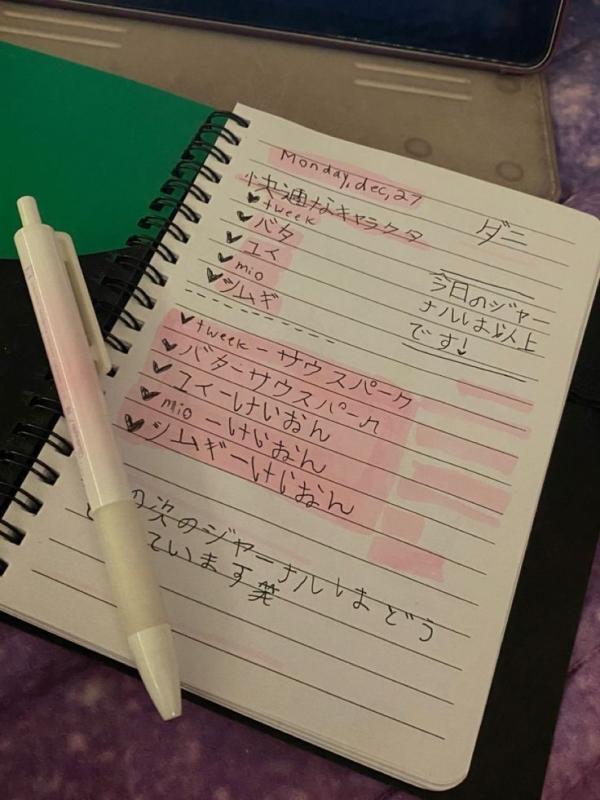 Monday, dec, 27
快適なキャラクタ
tweek
バタ
ユイ
mio
シムギ
ダニ
今日のジャー
ナルは以上
です!
tweek - サウスパーク
バター サウスパーク
ユイーけいおん
mio ーけいおん
シムギーけいおん
の次のジャーナルはどう
ています笑